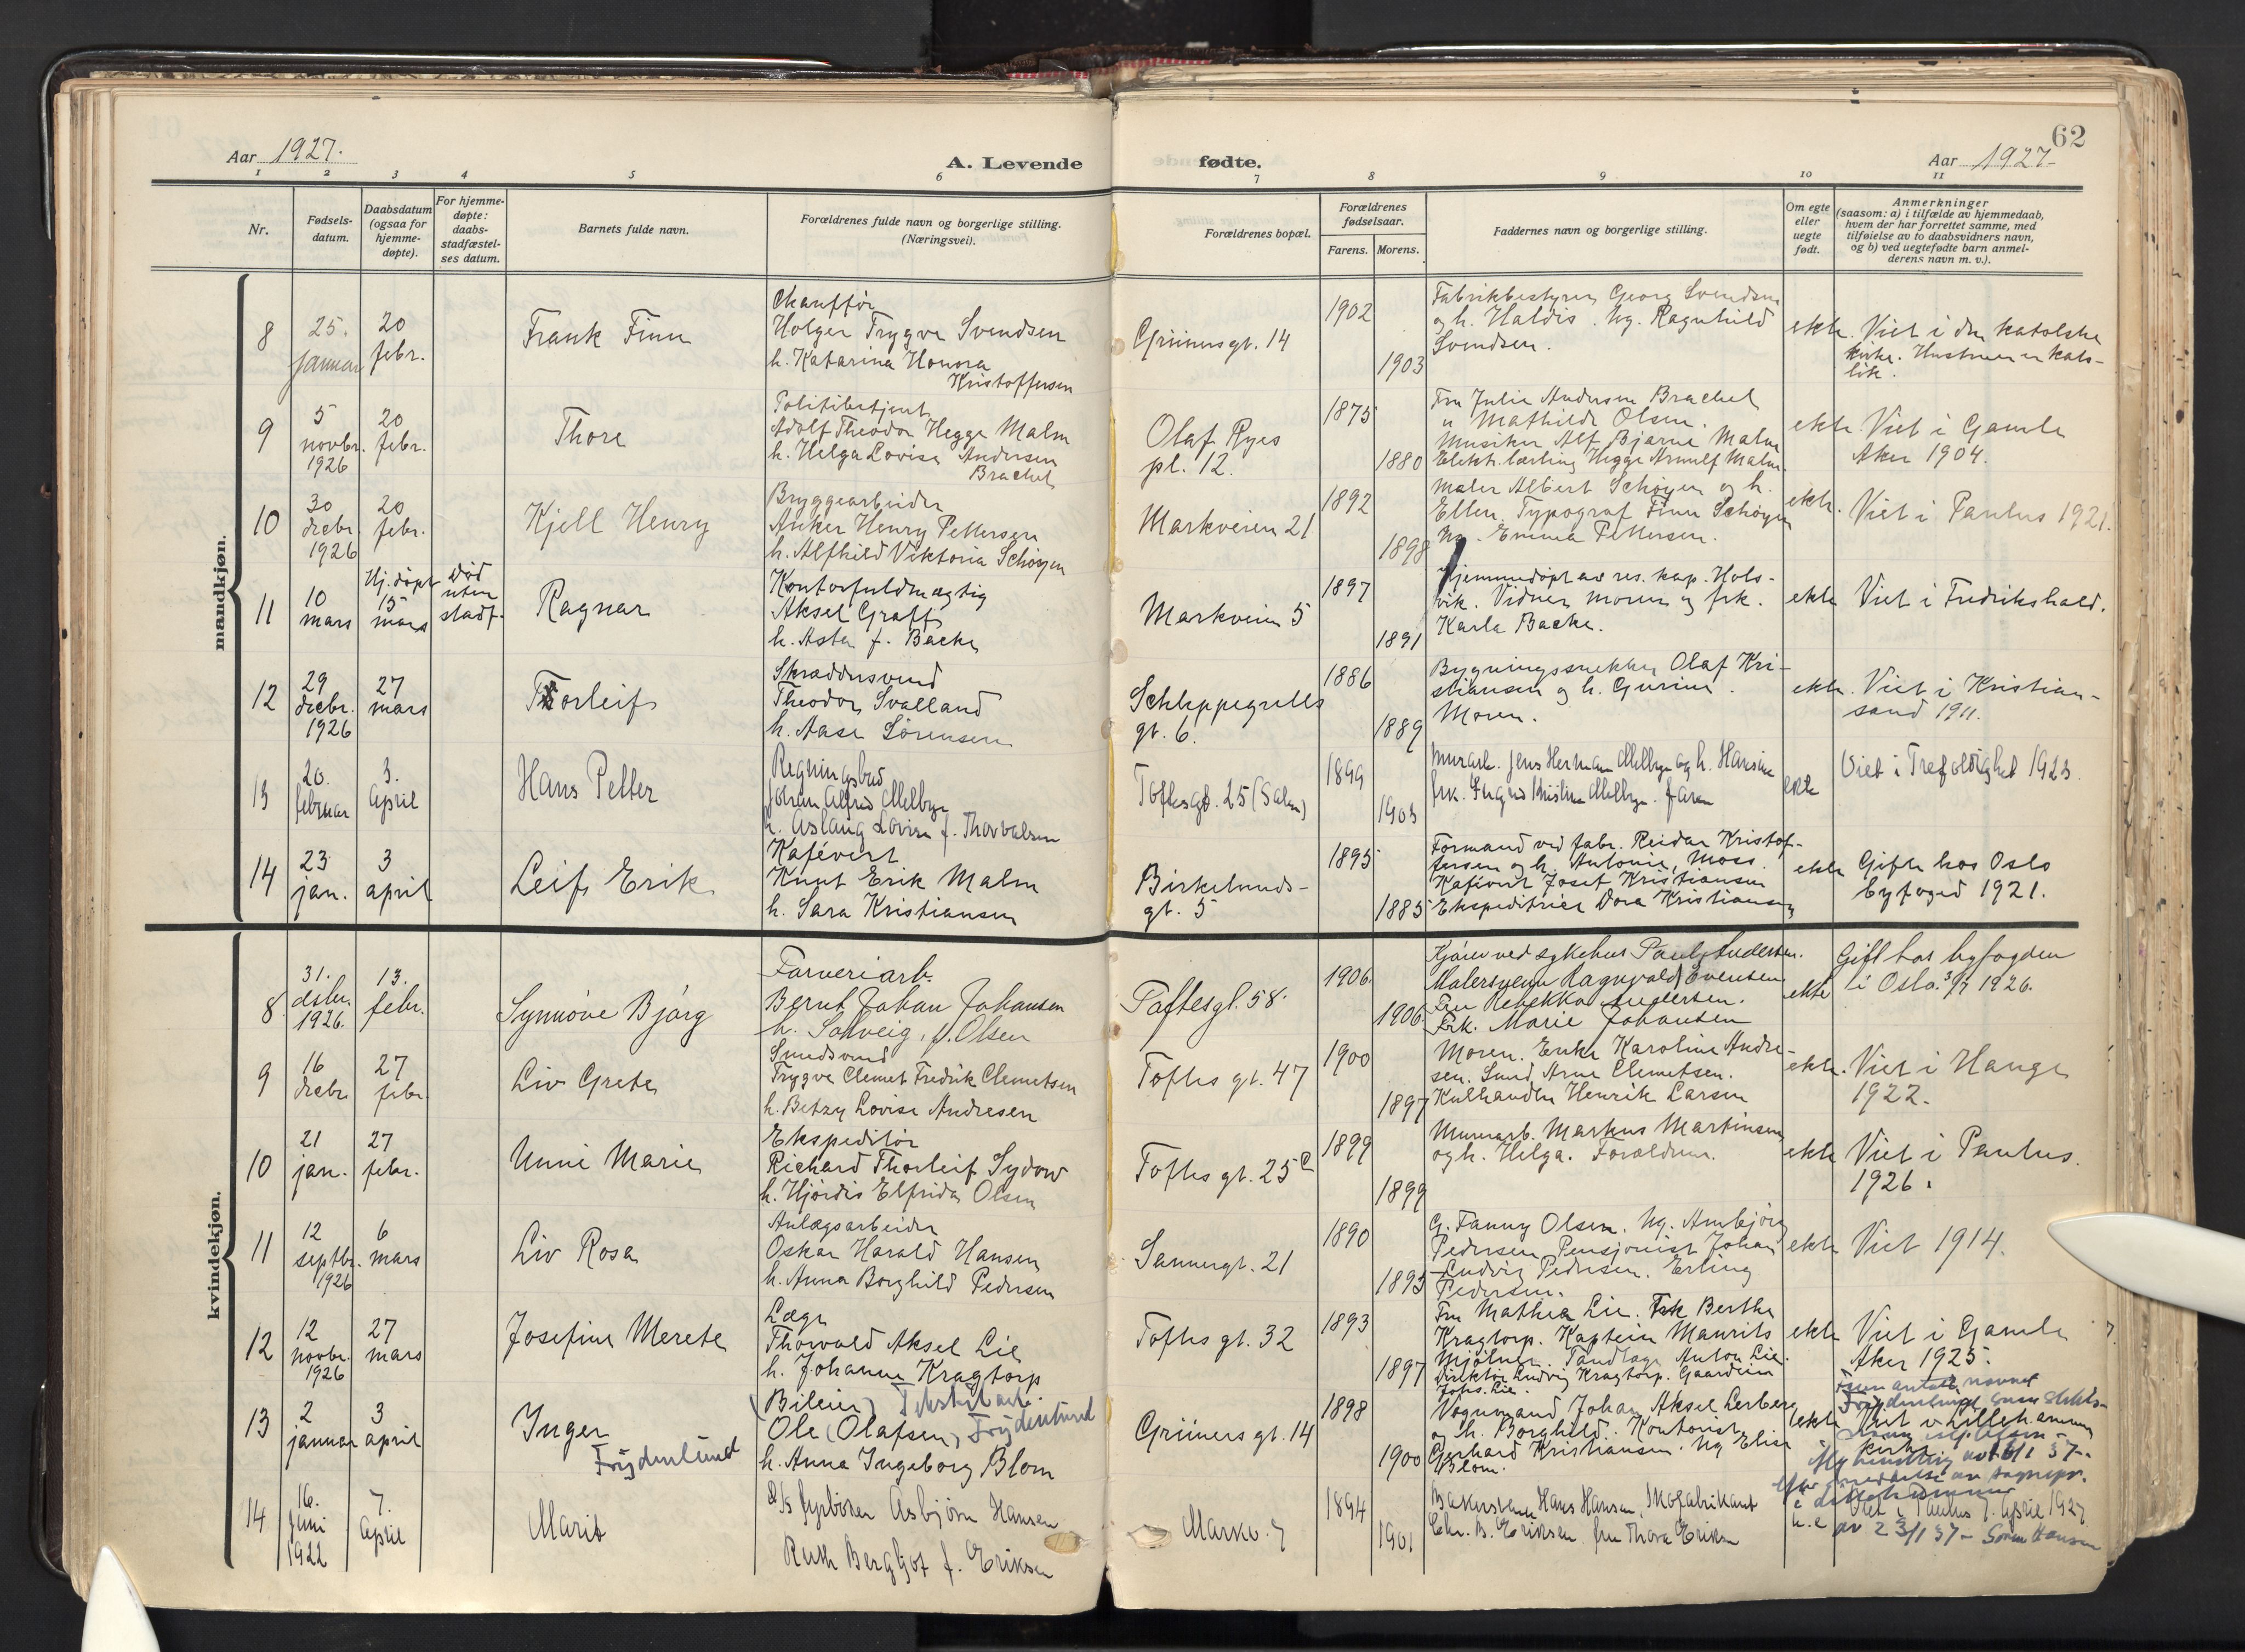 62
Aar 1927.
A. Levende fødte.
Aar 1927
1 2 3 4 5 6 7 8 9 10 11
Nr.
Fødsels-
datum.
Daabsdatum
(ogsaa for
hjemme-
døpte).
For hjemme-
døpte:
daabs-
stadfæstel-
ses datum.
Barnets fulde navn.
Forældrenes fulde navn og borgerlige stilling.
(Næringsvei).
Forældrenes bopæl.
Forældrenes
fødselsaar.
Farens. Morens.
Faddernes navn og borgerlige stilling.
Om egte
eller
uegte
født.
Anmerkninger
(saasom: a) i tilfælde av hjemmedaab,
hvem der har forrettet samme, med
tilføielse av to daabsvidners navn,
og b) ved uegtefødte barn anmel-
derens navn m. v.).
mandkjøn.
8
25.
januar
20
febr.
Frank Finn
Chauffør
Holger Trygve Svendsen
h. Katarina Honora
Kristoffersen
Grünersgt. 14
1902
1903
Fabrikbestyrer Georg Svendsen
og h. Haldis. Ug. Ragnhild
Svendsen.
ekte
Viet i den katolske
kirke. Hustruen er kato-
lik.
9
5
novbr.
1926
20
febr.
Thore
Politibetjent
Adolf Theodor Hegge Malm
h. Helga Lovise Andersen
Brachel
Olaf Ryes
pl. 12.
1875
1880
Fru Julie Andersen Brachel
" Mathilde Olsen.
Musiker Alf Bjarne Malm
Elektr. lærling Hegge Arnulf Malm.
ekte
Viet i Gamle
Aker 1904.
10
30
decbr.
1926
20
febr.
Kjell Henry
Bryggearbeider
Anker Henry Pettersen
h. Alfhild Viktoria Schøyen
Markveien 21
1892
1898
Maler Albert Schøyen og h.
Ellen. Typograf Finn Schøyen
Ug. Emma Pettersen.
ekte.
Viet i Paulus 1921.
11
10
mars
Hj.døpt
15
mars
død
uten
stadf.
Ragnar
Kontorfuldmægtig
Aksel Graff
h. Asta f. Backe
Markveien 5
1897
1891
Hjemmedøpt av res. kap. Hols-
vik. Vidner moren og frk.
Karla Backe.
ekte
Viet i Fredrikshald.
12
29
decbr.
1926
27
mars
Thorleif
Skræddersvend
Theodor Svalland
h. Aase Sørensen
Schleppegrells
gt. 6.
1886
1889
Bygningssnekker Olaf Kri-
stiansen og h. Gurine.
Moren.
ekte
Viet i Kristian-
sand 1911.
13
20.
februar
3.
April
Hans Petter
Regningsbud
Johan Alfred Melbye
h. Aslaug Lovise f. Thorvalsen
Toftesgt. 25 (Salen)
1899
1903
Murarb. Jens Herman Melbye og h. Hansine
frk. Ingrid Kristine Melbye. faren
ekte
Viet i Trefoldighet 1923.
14
23
jan.
3
april
Leif Erik
Kafévert
Knut Erik Malm
h. Sara Kristiansen
Birkelunds-
gt. 5
1895
1885
Formand ved fabr. Reidar Kristof-
fersen og h. Antonie, Moss.
Kafévert Josef Kristiansen
Ekspeditrice Dora Kristiansen
ekte
Gifte hos Oslo
byfoged 1921.
kvindekjøn.
8
31.
desbr.
1926.
13.
febr.
Synnöve Bjørg
Farveriarb.
Bernt Johan Johansen
h. Solveig, f. Olsen
Toftesgt. 58.
1906.
1906.
Kjører ved sykehus Paul Andersen.
Malersvenn Ragnvald Evensen
Fru Rebekka Andersen.
Frk. Marie Johansen
ekte
Gift hos byfogden
i Oslo 3/7 1926.
9
16
decbr.
27
febr.
Liv Grete
Smedsvend
Trygve Clemet Fredrik Clemetsen
h. Betzy Lovise Andresen
Toftes gt. 47
1900
1897
Moren. Enke Karoline Andre-
sen. Smed Arne Clemetsen.
Kulhandler Henrik Larsen
ekte.
Viet i Hauge
1922.
10
21
jan.
27
febr.
Unni Marie
Ekspeditör
Richard Thorleif Sydow
h. Hjördis Elfrida Olsen
Toftes gt. 25 c
1899
1899
Murerarb. Markus Martinsen
og h. Helga. Forældrene.
ekte
Viet i Paulus.
1926.
11
12
septbr.
1926
6
mars
Liv Rosa
Anlægsarbeider
Oskar Harald Hansen
h. Anna Borghild Pedersen
Sannergt. 21
1890
1895
G. Fanny Olsen. Ug. Annbjörg
Pedersen Pensjonist Johan
Ludvig Pedersen. Erling
Pedersen.
ekte
Viet 1914.
12
12
novbr.
1926
27
mars
Josefine Merete
Læge
Thorvald Aksel Lie
h. Johanne Kragtorp
Toftes gt. 32
1893
1897
Fru Mathea Lie. Frk Berthe
Kragtorp. Kaptein Maurits
Mjölner. Tandlæge Anton Lie.
Direktör Ludvig Kragtorp. Gaardeier
Johs. Lie.
ekte
Viet i Gamle
Aker 1925.
13
2
januar
3
april
Inger
Frydenlund
(Bileier) Tekstilarb.
Ole (Olafsen) Frydenlund
h. Anna Ingeborg Blom
Grüners gt. 14
1898
1900
Vognmand Johan Aksel Lerberg
og h. Borghild. Kontorist
Gerhard Kristiansen. Ug Elise
Blom.
ekte
Viet v Lillehammer
kirke
14
16.
Juni
1922
7.
April
Marit
D/s fyrböter Asbjørn Hansen
Ruth Bergljot f. Eriksen
Markv. 7
1894
1901
Bakersvend Hans Hansen, Skofabrikant
Chr. B. Eriksen. fru Thora Eriksen
u.e
Viet i Paulus 7. April 1927.
av 23/1 37 - Sören Hansen